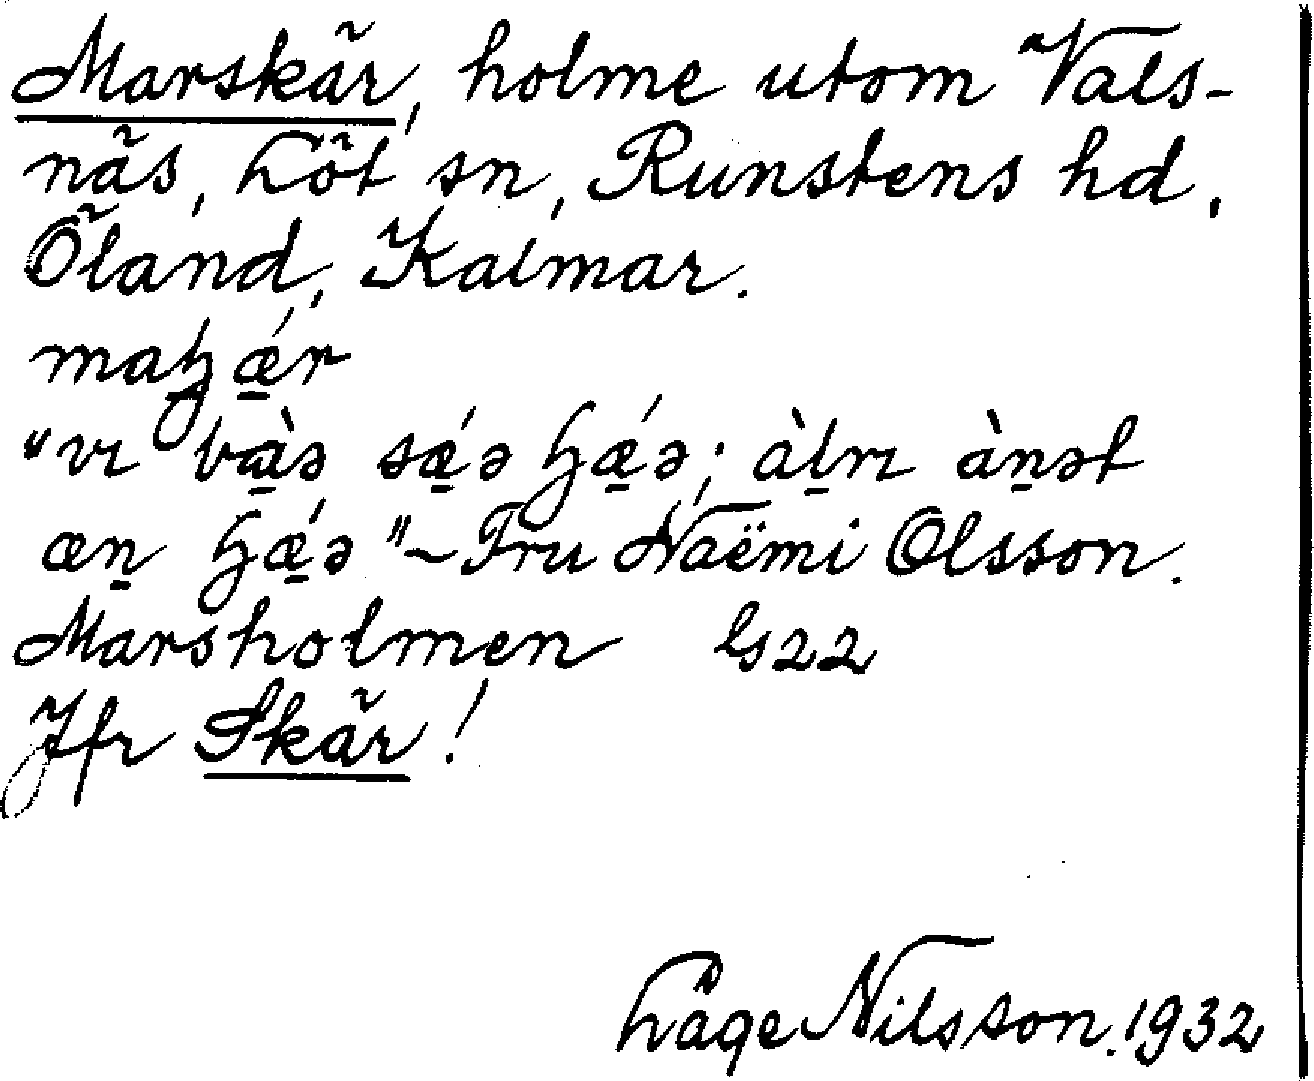 Marskär, holme utom Vals-
näs, Löt sn, Runstens hd,
Öland, Kalmar.
maꜧǽ̱r
"vı bà̱ə sǽ̱ə ꜧǽ̱ə; àḻrı àṉət
æṉ ꜧǽ̱ə" – Fru Naëmi Olsson.
Marsholmen
Jfr Skär!
Låge Nilsson. 1932